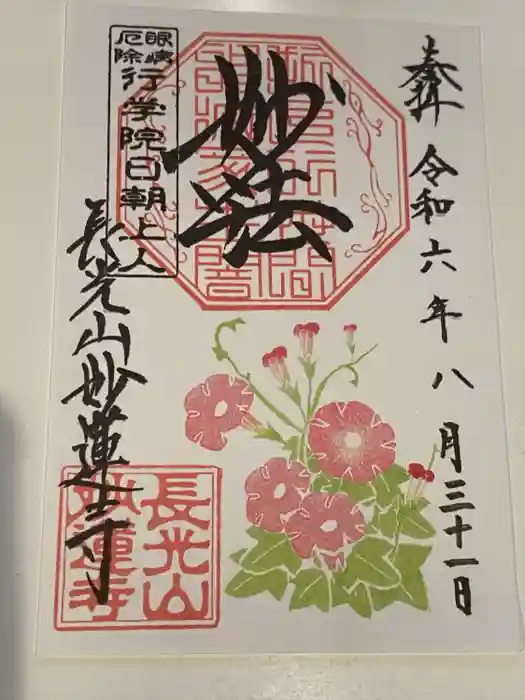 奉拝
令和六年八月三十一日
妙法
眼病
厄除
行学院日朝上人
長光山妙蓮寺
長光山
妙蓮寺